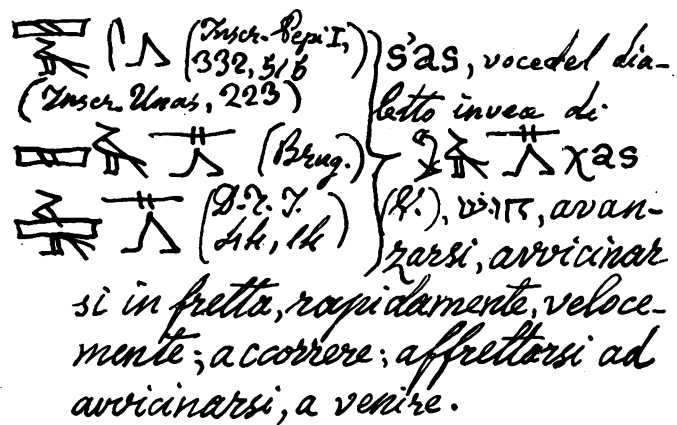 (Inscr. Pepi I,
332, 516
(Inscr. Unas, 223)
(Brug.)
(D.T.I.
s'as, voce del dia-
letto invece di
χas
(V.), חוש, avan-
zarsi, avvicinar
si in fretta, rapidamente, veloce-
mente; accorrere; affrettarsi ad
avvicinarsi, a venire.